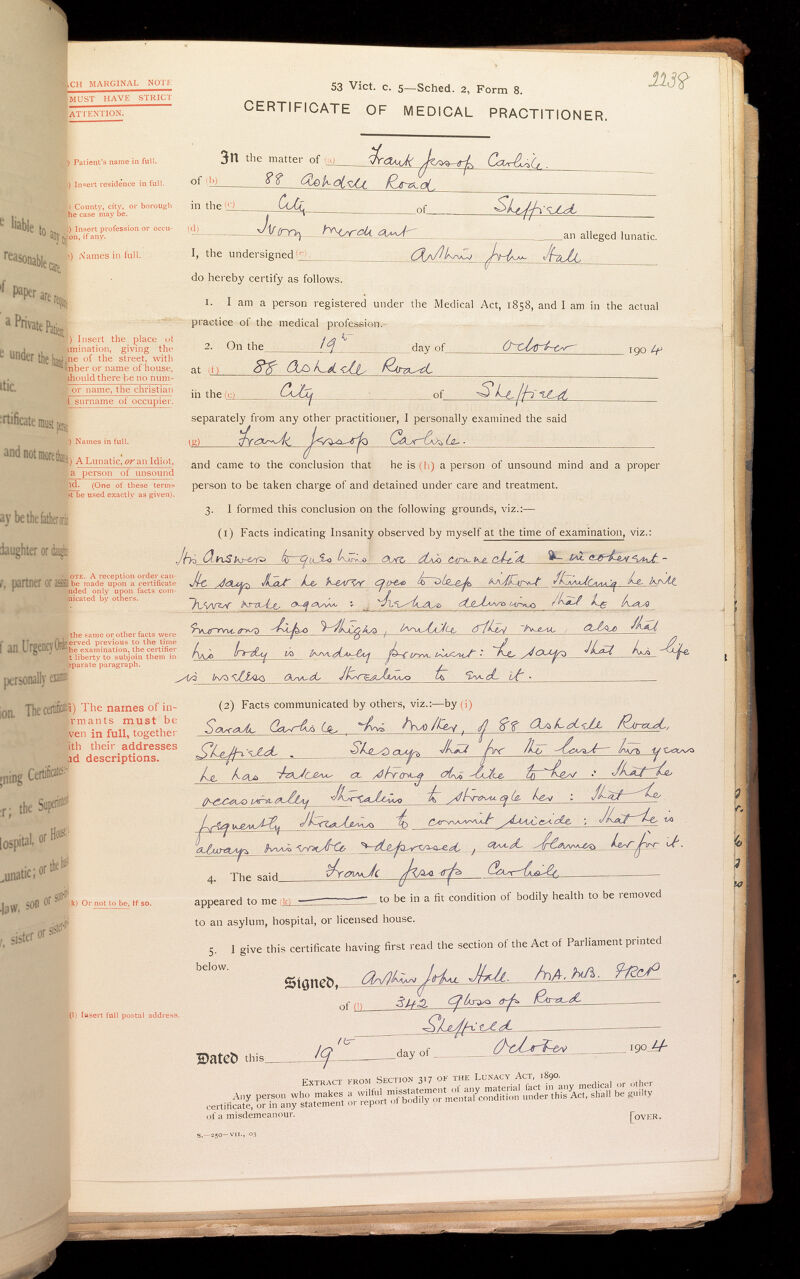 2238
53 Vict. c. 5—Sched. 2, Form 8.
CERTIFICATE OF MEDICAL PRACTITIONER.
CH MARGINAL NOTE
MUST HAVE STRICT
ATTENTION.
) Patient's name in full.
) Insert residence in full.
) County, city, or borough
he case may be.
) Insert profession or occu-
on, if any.
) Names in full.
In the matter of (a) Frank Jessop Carlisle.
of (b) 88 Ashdell Road
in the (c) City of Sheffield
(d) Ivory merchant an alleged lunatic.
I, the undersigned (e) Arthur John Hall
do hereby certify as follows.
1. I am a person registered under the Medical Act, 1858, and I am in the actual
practice of the medical profession.
) Insert the place of
mination, giving the
ne of the street, with
mber or name of house,
should there be no num-
or name, the christian
surname of occupier.
2. On the 19th day of October 1904
at (f) 88 Ashdell Road
in the (c) City of Sheffield
separately from any other practitioner, I personally examined the said
) Names in full.
(g) Frank Jessop Carlisle.
) A Lunatic, or an Idiot,
a person of unsound
nd. (One of these terms
st be used exactly as given).
and came to the conclusion that he is (h) a person of unsound mind and a proper
person to be taken charge of and detained under care and treatment.
3. I formed this conclusion on the following grounds, viz.:—
(1) Facts indicating Insanity observed by myself at the time of examination, viz.:
His Answers to questions are disconnected & incoherent -
He says that he never goes to sleep without thinking he will
never wake again : He has delusions that he has
enormous hips & thighs, unlike other men also that
his body is unduly prominent : he says that his life
is useless and threatens to end it.
OTE. A reception order can-
be made upon a certificate
nded only upon facts com-
nicated by others.
the same or other facts were
erved previous to the time
he examination, the certifier
t liberty to subjoin them in
eparate paragraph.
(2) Facts communicated by others, viz.:—by (i)
Sarah Carlisle, his Mother, of 88 Ashdell Road,
Sheffield. She says that for the last two years
he has taken a strong dislike to her : that he
occasionally threatens to strangle her : that he
frequently threatens to commit suicide : that he is
always miserable & depressed, and blames her for it.
i) The names of in-
rmants must be
ven in full, together
ith their addresses
nd descriptions.
4. The said Frank Jessop Carlisle
appeared to me (k) to be in a fit condition of bodily health to be removed
to an asylum, hospital, or licensed house.
k) Or not to be, if so.
5. I give this certificate having first read the section of the Act of Parliament printed
below.
Signed, Arthur John Hall. MA. MB. FRCP
of (l) 342 Glossop Road
Sheffield
(l) Insert full postal address.
Dated this 19th day of October 1904
EXTRACT FROM SECTION 317 OF THE LUNACY ACT, 1890.
Any person who makes a wilful misstatement of any material fact in any medical or other
certificate, or in any statement or report of bodily or mental condition under this Act, shall be guilty
of a misdemeanour.
[OVER.
S.—250—VII., 03
e liable to any
reasonable care
f paper are
a Private Patient
e under the hand
tic.
ertificate must
and not more than
ay be the father
daughter or
r, partner or
f an Urgency Order
personally
ion. The
ning Certificates
r; the
lospital, or House
unatic; or the
law, son or
, sister or